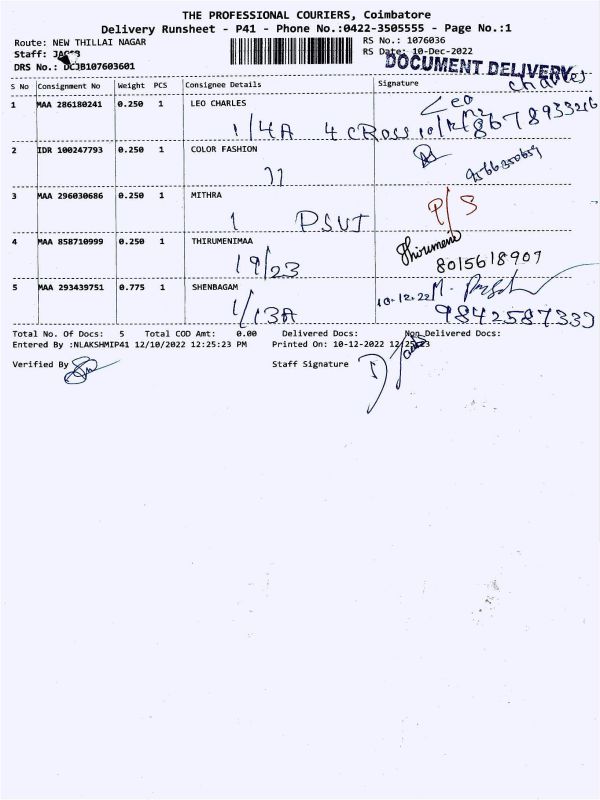 THE PROFESSIONAL COURIERS, Coimbatore
Delivery Runsheet - P41 - Phone No.:0422-3505555 - Page No.:1
Route: NEW THILLAI NAGAR RS No.: 1076036
Staff: RS Date: 10-Dec-2022
DRS No.: DCJB107603601 DOCUMENT DELIVERY
S No Consignment No Weight PCS Consignee Details Signature
1 MAA 286180241 0.250 1 LEO CHARLES Leo Charles
1/4A 4 CROSS 8678933216
2 IDR 100247793 0.250 1 COLOR FASHION
11
3 MAA 296030686 0.250 1 MITHRA P/S
1 PSUT
4 MAA 858710999 0.250 1 THIRUMENIMAA Thirumeni
19/23 8015618907
5 MAA 293439751 0.775 1 SHENBAGAM 10.12.22 M.
1/13A 9842587339
Total No. Of Docs: 5 Total COD Amt: 0.00 Delivered Docs: Non Delivered Docs:
Entered By :NLAKSHMIP41 12/10/2022 12:25:23 PM Printed On: 10-12-2022 12:25:23
Verified By Staff Signature